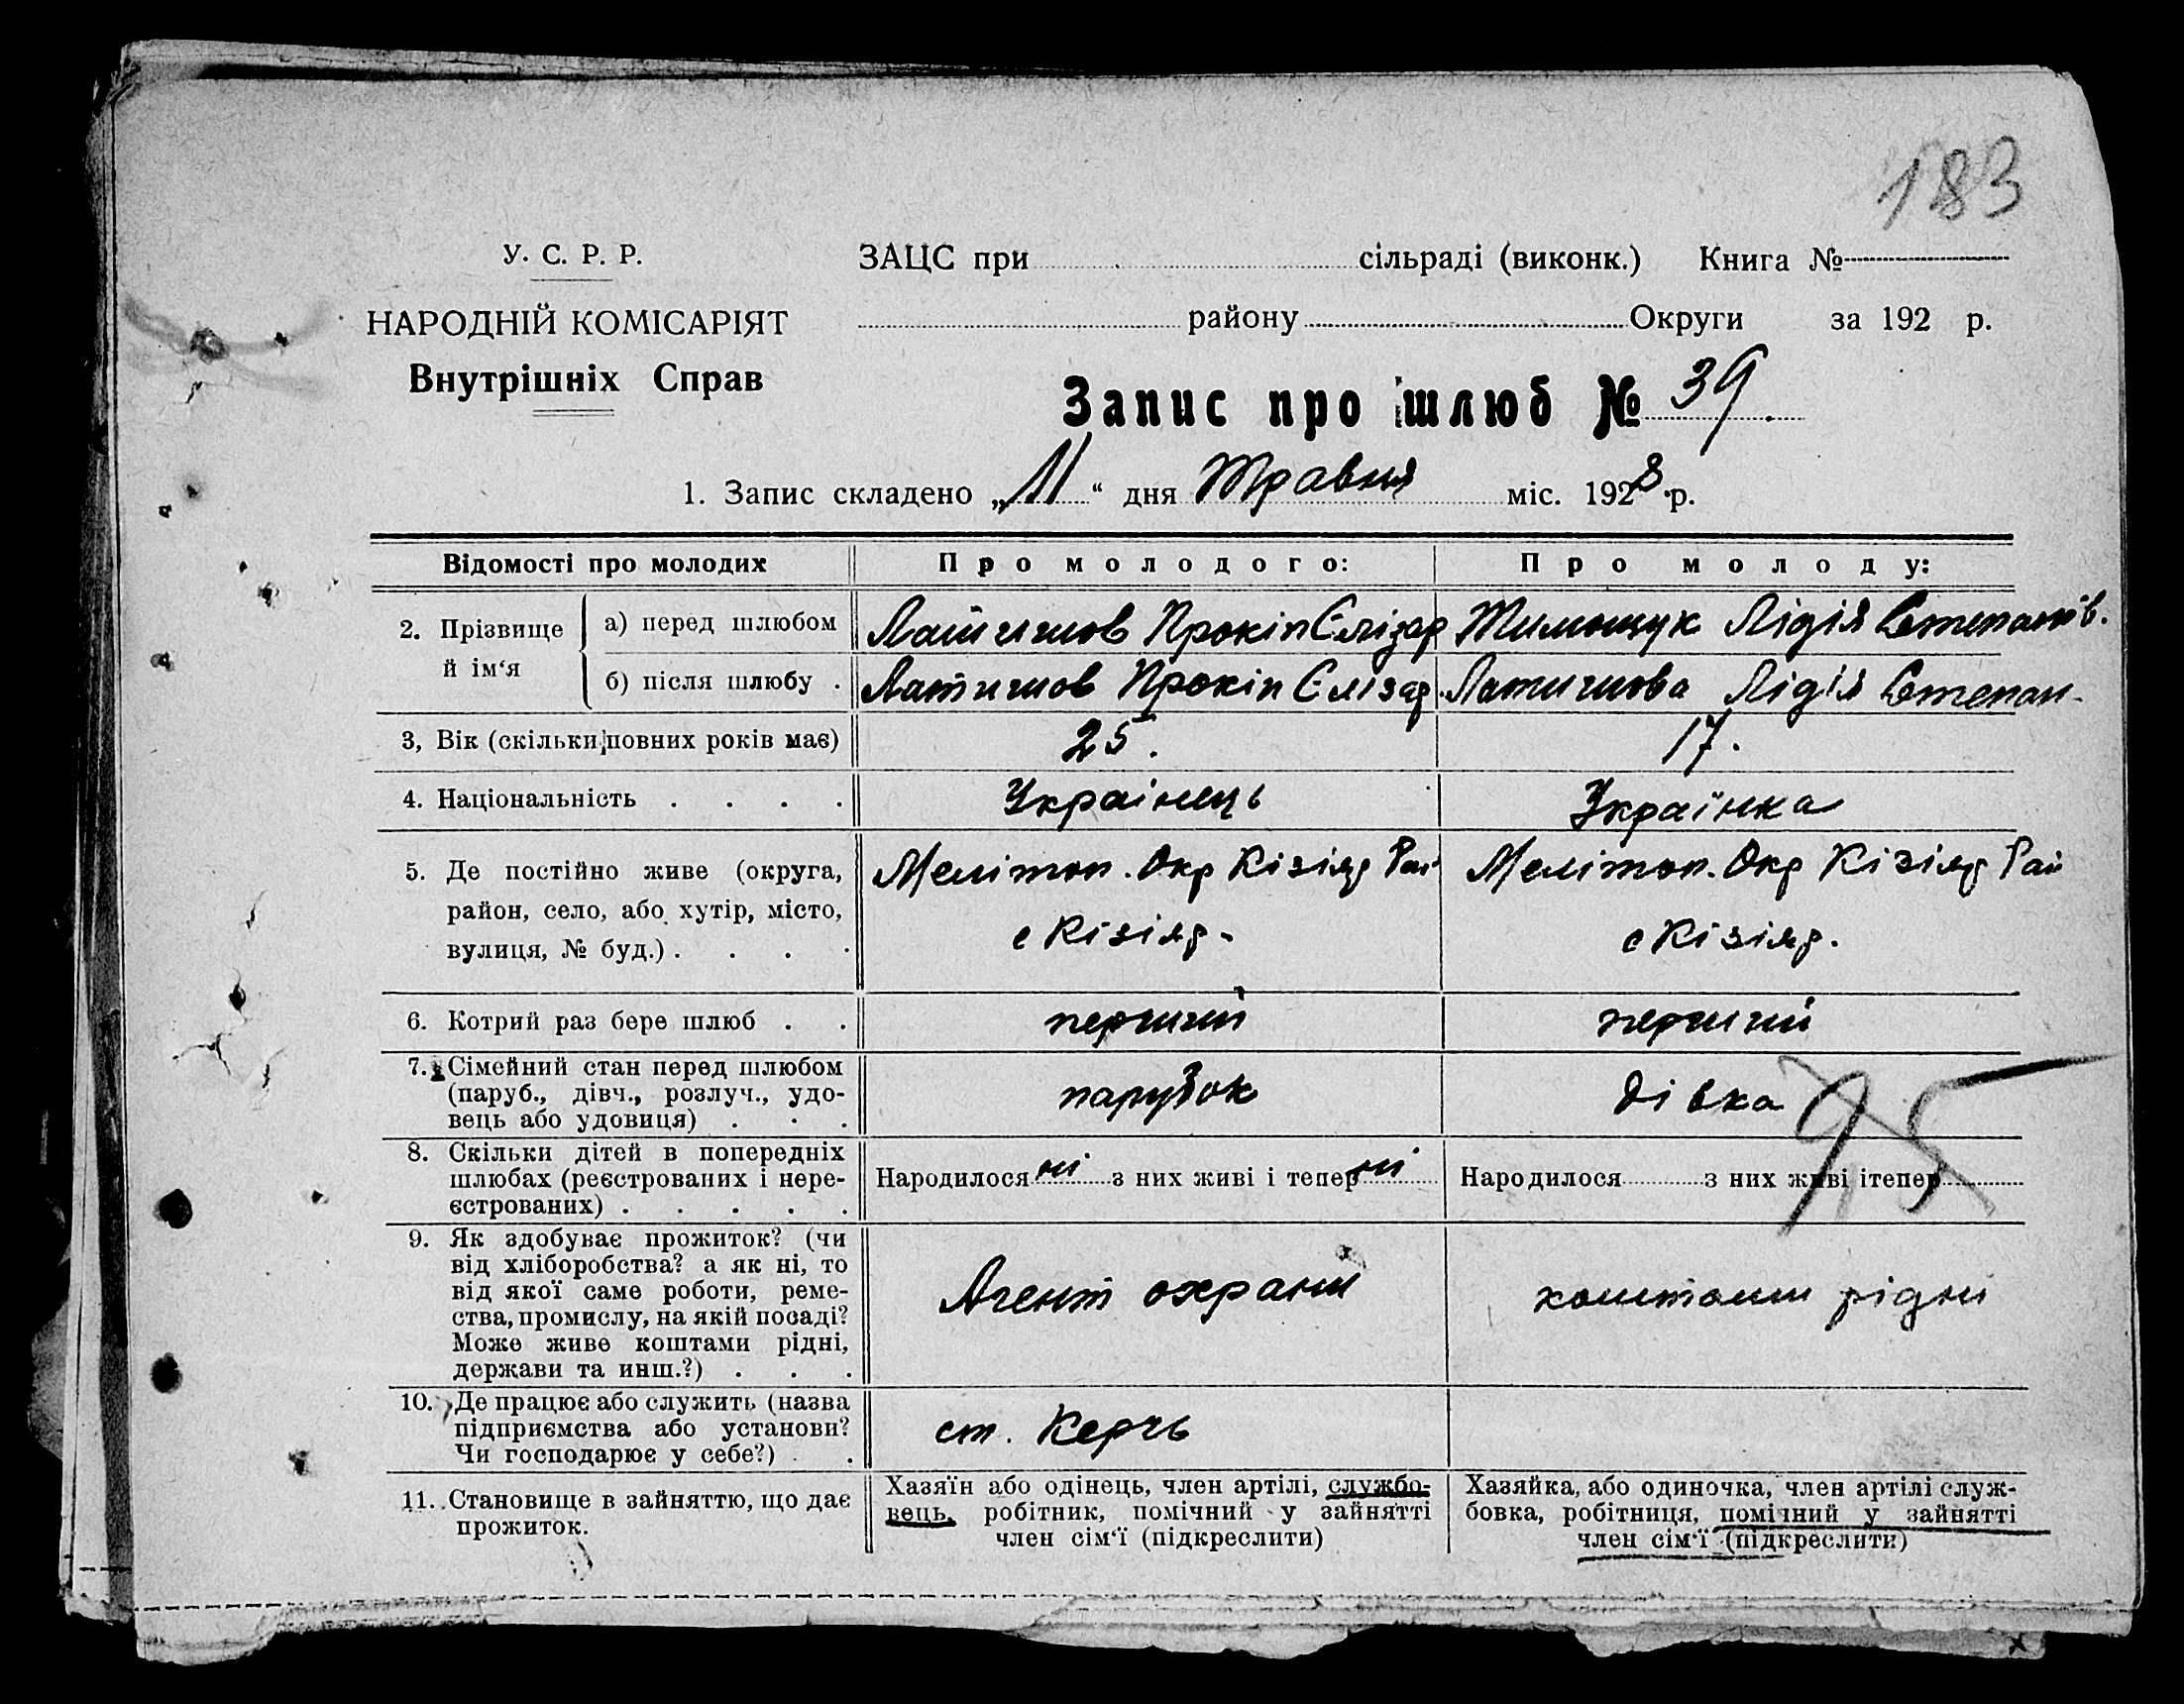 183
У. С. Р. Р.
НАРОДНІЙ КОМІСАРІЯТ
Внутрішніх Справ
ЗАЦС при сільраді (виконк.) Книга №
району Округи за 192 р.
Запис про шлюб № 39.
1. Запис складено „11“ дня Травня міс. 1928 р.
Відомості про молодих Про молодого: Про молоду:
2. Прізвище й ім‘я
а) перед шлюбом Латишов Прокіп Єлізар Тимощук Лідія Степанів.
б) після шлюбу . Латишов Прокіп Єлізар. Латишова Лідія Степан.
3, Вік (скільки повних років має) 25. 17.
4. Національність . . . . Українець Українка
5. Де постійно живе (округа,
район, село, або хутір, місто,
вулиця, № буд.) . . . .
Меліточ. Окр Кізіяр Рай
с Кізіяр.
Меліточ. Окр Кізіяр Рай
с Кізіяр.
6. Котрий раз бере шлюб . . перший перший
7. Сімейний стан перед шлюбом
(паруб., дівч., розлуч., удо-
вець або удовиця) . . .
парубок
дівка
95
8. Скільки дітей в попередніх
шлюбах (реєстрованих і нере-
єстрованих) . . . . .
Народилося ні з них живі і тепер ні
Народилося з них живі ітепер
9. Як здобуває прожиток? (чи
від хліборобства? а як ні, то
від якої саме роботи, реме-
ства, промислу, на якій посаді?
Може живе коштами рідні,
держави та инш.?) . . .
Агент охрани
коштами рідни
10. Де працює або служить (назва
підприємства або установи?
Чи господарює у себе?) . .
ст. Керчь
11. Становище в зайняттю, що дає
прожиток.
Хазяїн або одінець, член артілі, службо-
вець, робітник, помічний у зайнятті
член сім‘ї (підкреслити)
Хазяйка, або одиночка, член артілі служ-
бовка, робітниця, помічний у зайнятті
член сім‘ї (підкреслити)